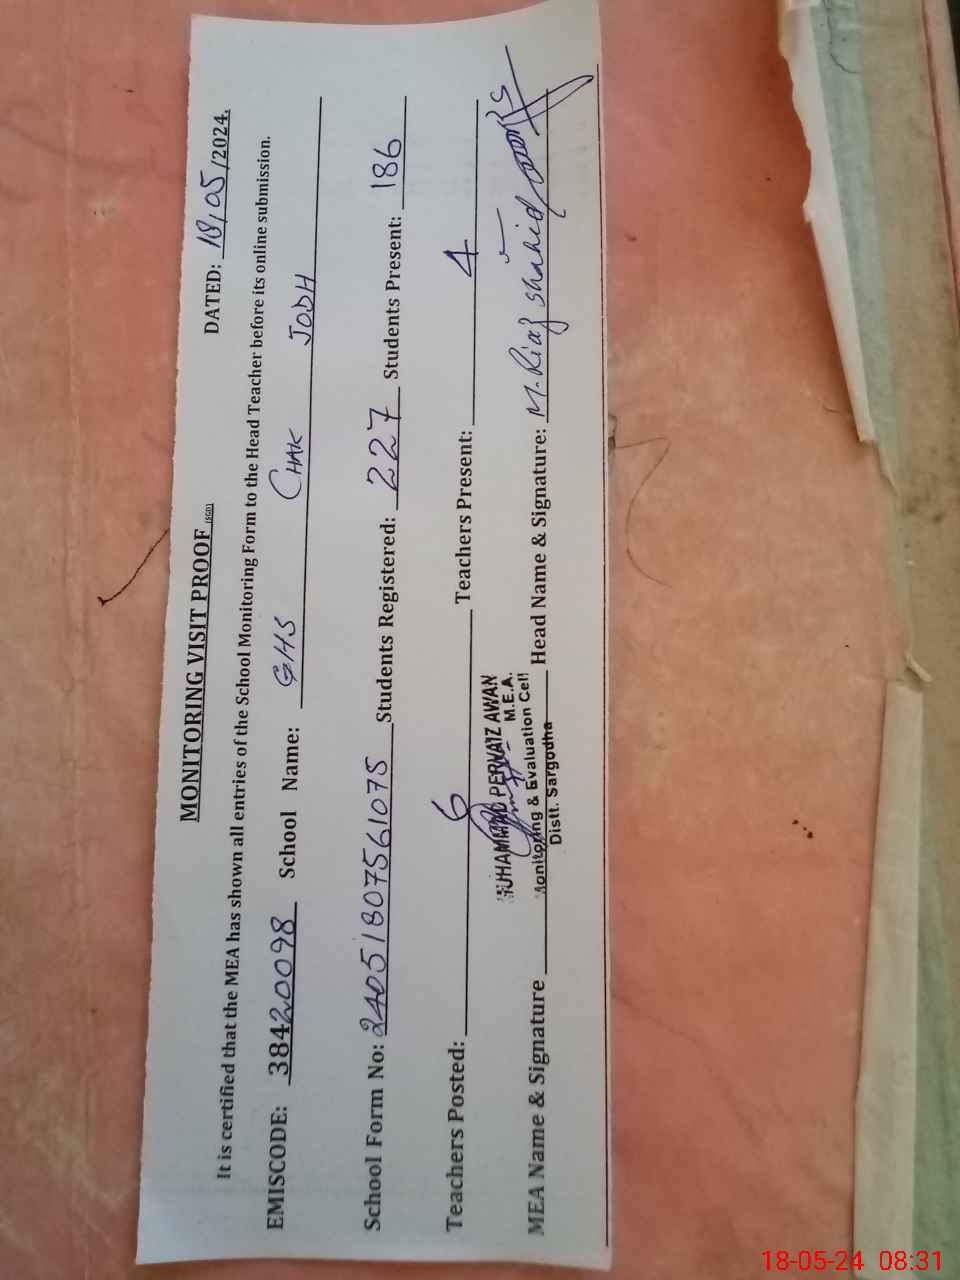 MONITORING VISIT PROOF (SGD)
DATED: 18/05/2024.
It is certified that the MEA has shown all entries of the School Monitoring Form to the Head Teacher before its online submission.
EMISCODE: 38420098 School Name: GHS CHAK JODH
School Form No: 24051807561075 Students Registered: 227 Students Present: 186
Teachers Posted: 6 Teachers Present: 4
MUHAMMAD PERVAIZ AWAN
M.E.A.
Monitoring & Evaluation Cell
Distt. Sargodha
MEA Name & Signature Head Name & Signature: M. Riaz Shahid
18-05-24 08:31